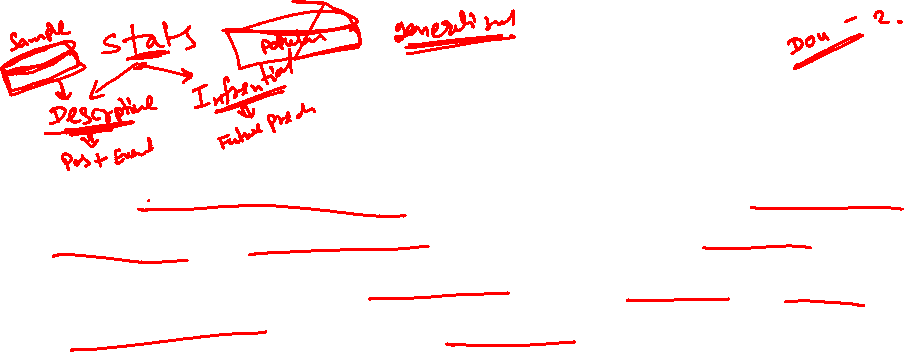 Sample
stats
generalised
Dou - 2.
Descrptive
Infrential
Past Event
Future Predn